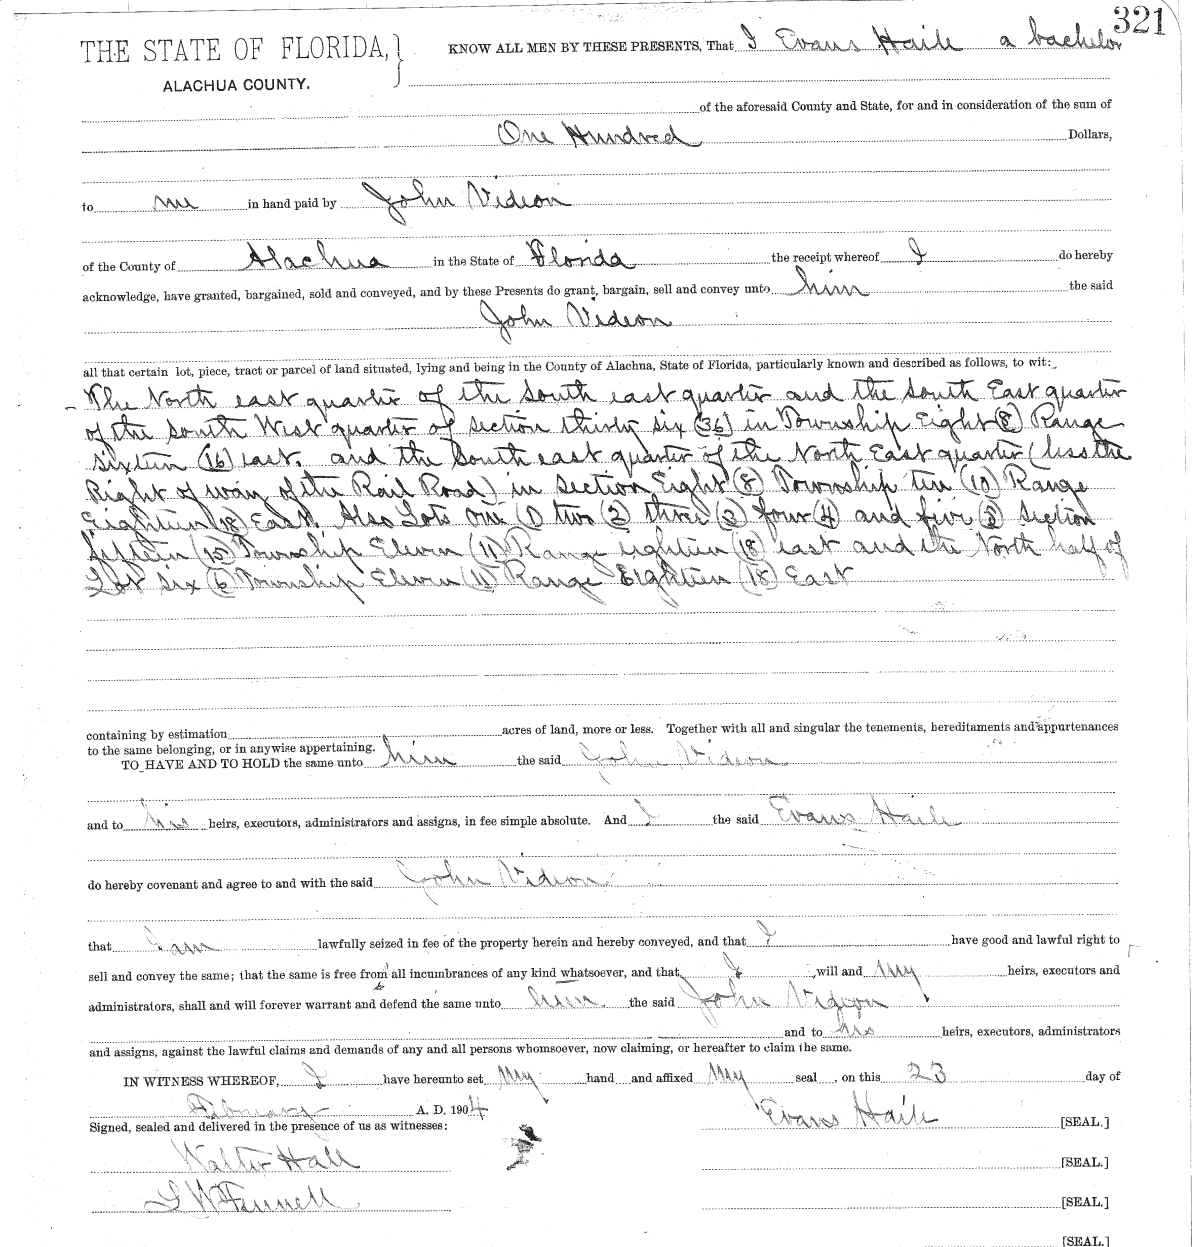 321
THE STATE OF FLORIDA,
ALACHUA COUNTY.
KNOW ALL MEN BY THESE PRESENTS, That I Evans Haile a bachelor
of the aforesaid County and State, for and in consideration of the sum of
One Hundred Dollars,
to me in hand paid by John Videon
of the County of Alachua in the State of Florida the receipt whereof I do hereby
acknowledge, have granted, bargained, sold and conveyed, and by these Presents do grant, bargain, sell and convey unto him the said
John Videon
all that certain lot, piece, tract or parcel of land situated, lying and being in the County of Alachua, State of Florida, particularly known and described as follows, to wit:
The North east quarter of the South east quarter and the South East quarter
of the South West quarter of section thirty six (36) in Township Eight (8) Range
sixteen (16) east. and the South east quarter of the North East quarter (less the
Right of way of the Rail Road) in Section Eight (8) Township ten (10) Range
Eighteen (18) East. Also Lots One (1) two (2) three (3) four (4) and five (5) Section
fifteen (15) Township Eleven (11) Range eighteen (18) east and the North half of
Lot six (6) Township Eleven (11) Range Eighteen (18) East
containing by estimation acres of land, more or less. Together with all and singular the tenements, hereditaments and appurtenances
to the same belonging, or in anywise appertaining.
TO HAVE AND TO HOLD the same unto him the said John Videon
and to his heirs, executors, administrators and assigns, in fee simple absolute. And I the said Evans Haile
do hereby covenant and agree to and with the said John Videon
that I am lawfully seized in fee of the property herein and hereby conveyed, and that I have good and lawful right to
sell and convey the same; that the same is free from all incumbrances of any kind whatsoever, and that I will and my heirs, executors and
administrators, shall and will forever warrant and defend the same unto him the said John Videon
and to his heirs, executors, administrators
and assigns, against the lawful claims and demands of any and all persons whomsoever, now claiming, or hereafter to claim the same.
IN WITNESS WHEREOF, I have hereunto set my hand and affixed my seal , on this 23 day of
February A. D. 1904
Evans Haile [SEAL.]
Signed, sealed and delivered in the presence of us as witnesses:
Walter Hall [SEAL.]
Fennell [SEAL.]
[SEAL.]